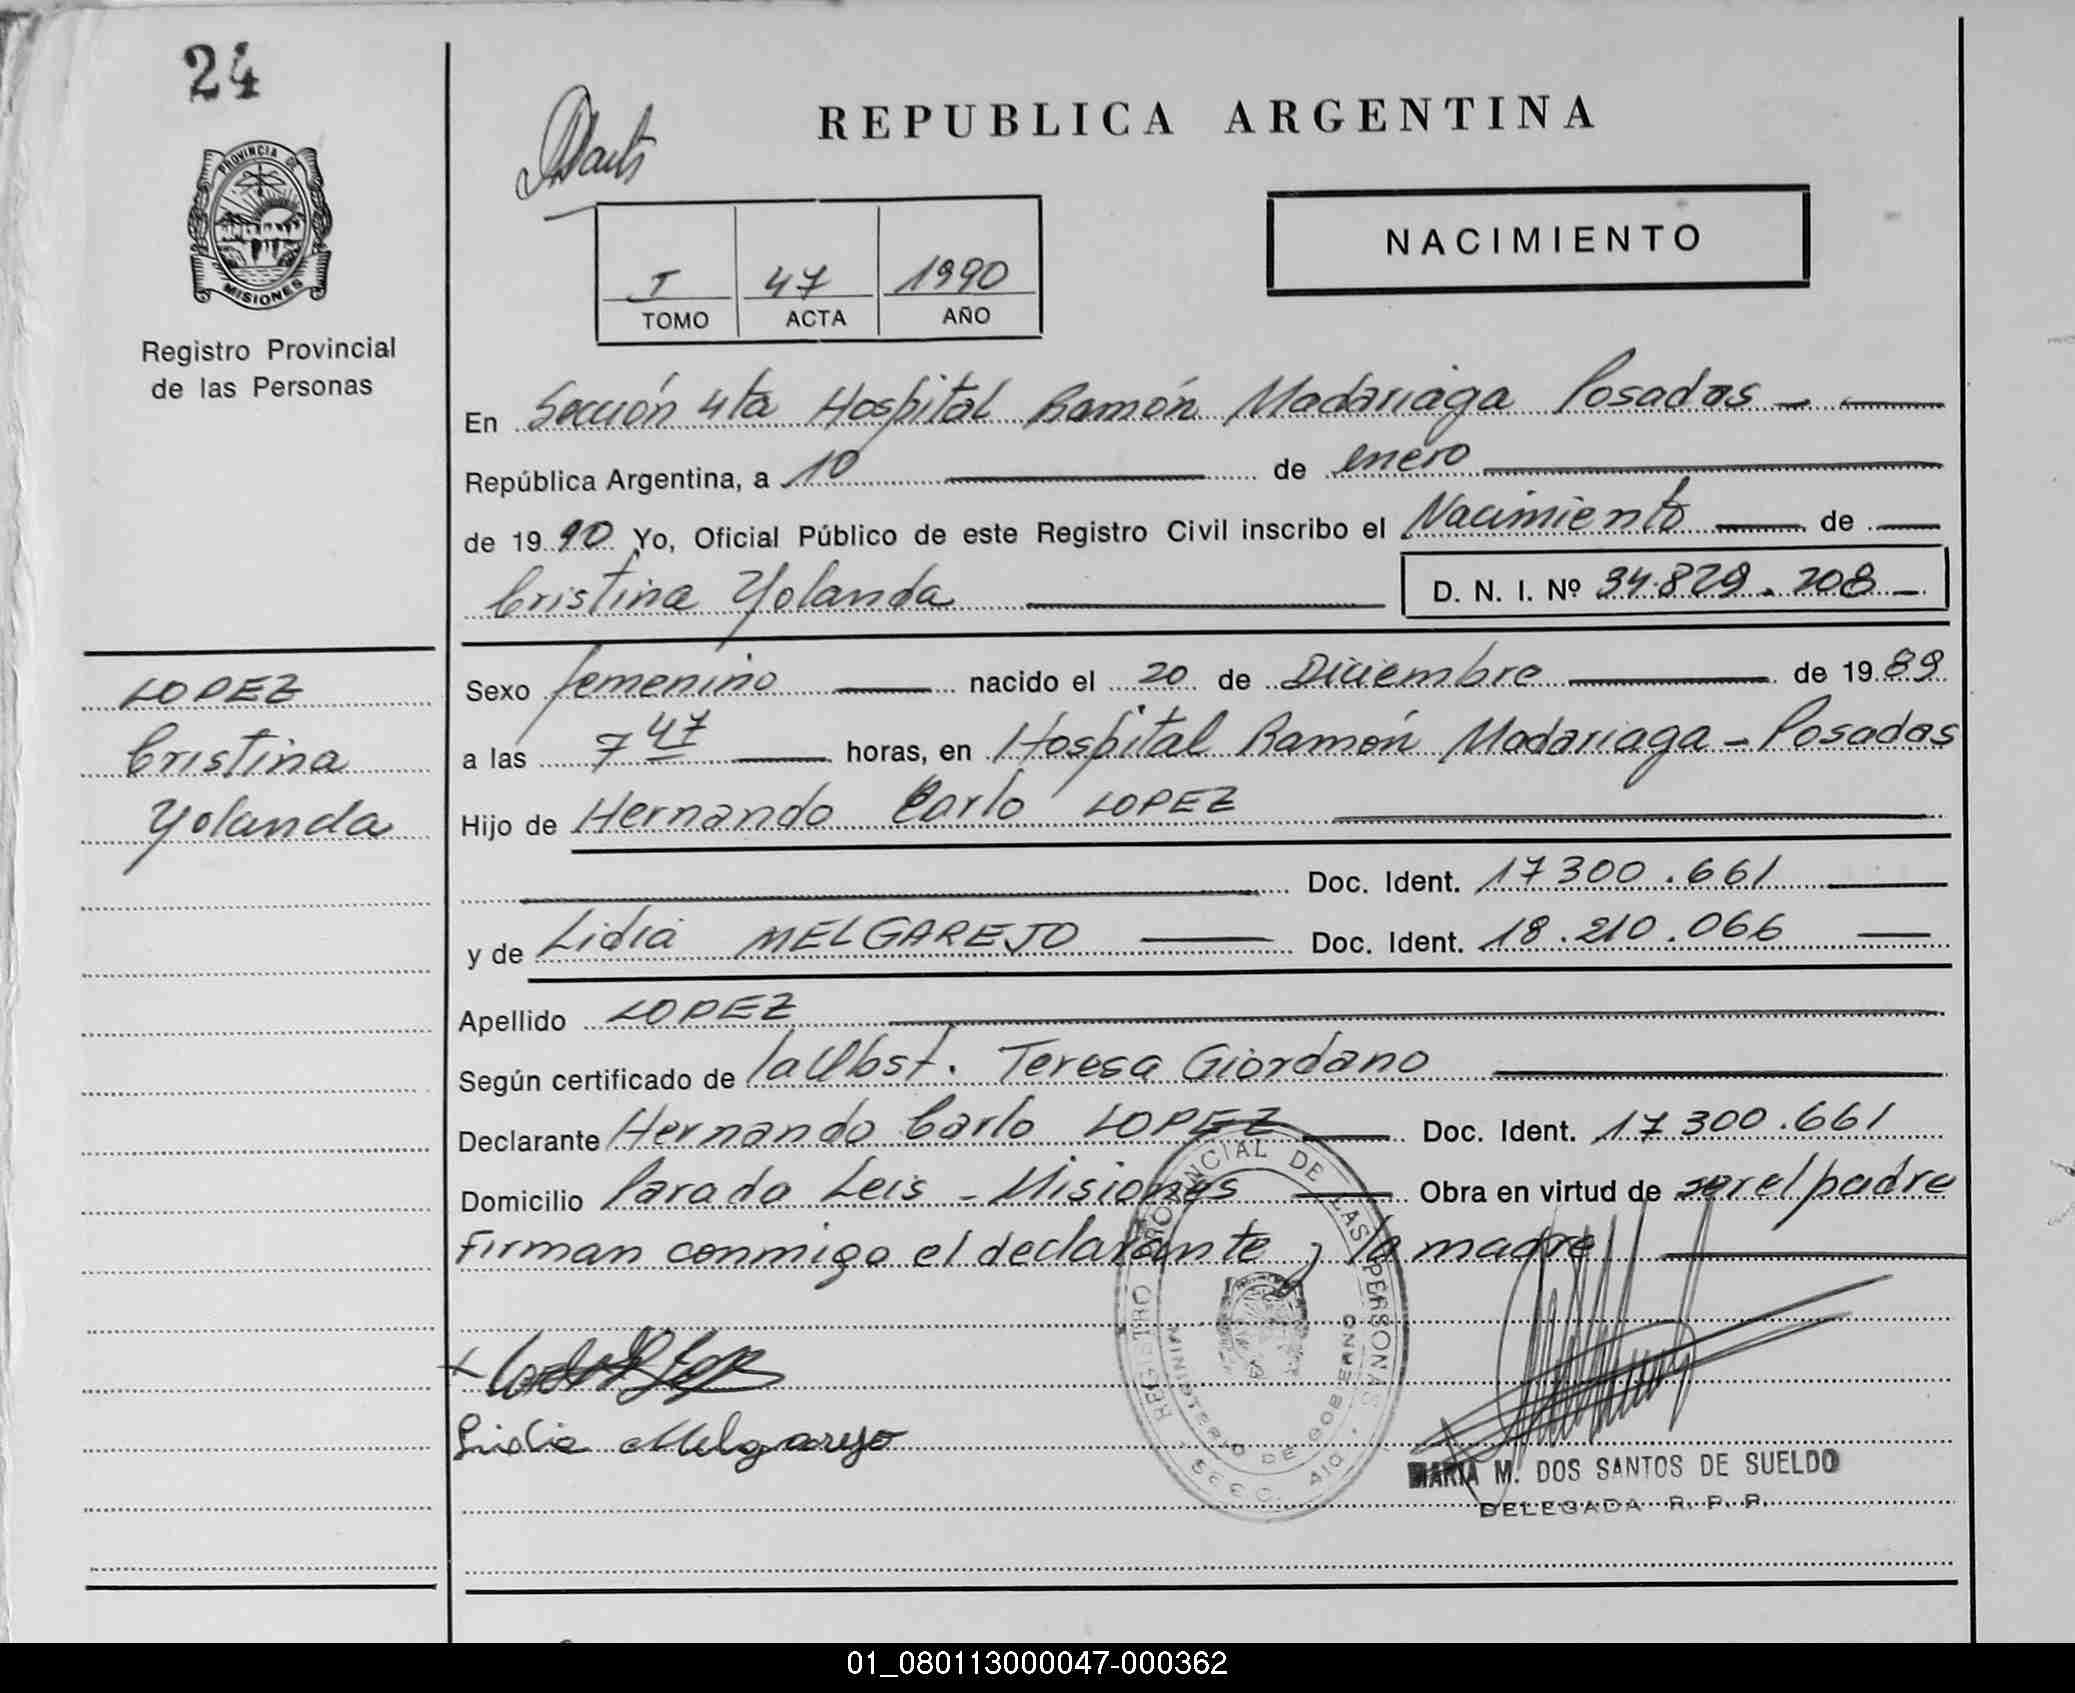 24
REPUBLICA ARGENTINA
PROVINCIA DE
MISIONES
Registro Provincial
de las Personas
NACIMIENTO
I 47 1990
TOMO ACTA AÑO
En Sección 4ta Hospital Ramón Madariaga Posadas -
República Argentina, a 10 de enero
de 1990 Yo, Oficial Público de este Registro Civil inscribo el Nacimiento de
Cristina Yolanda D. N. I. Nº 34.829.208 -
LOPEZ
Cristina
Yolanda
Sexo femenino nacido el 20 de Diciembre de 1989
a las 7 47 horas, en Hospital Ramón Madariaga - Posadas
Hijo de Hernando Carlo LOPEZ
Doc. Ident. 17300.661
y de Lidia MELGAREJO Doc. Ident. 18.210.066
Apellido LOPEZ
Según certificado de la Obst. Teresa Giordano
Declarante Hernando Carlo LOPEZ Doc. Ident. 17300.661
Domicilio Parada Leis - Misiones Obra en virtud de ser el padre
Firman conmigo el declarante y la madre
REGISTRO PROVINCIAL DE LAS PERSONAS
MINISTERIO DE GOBIERNO
Lidia Melgarejo
MARIA M. DOS SANTOS DE SUELDO
DELEGADA R. P. P.
01_080113000047-000362